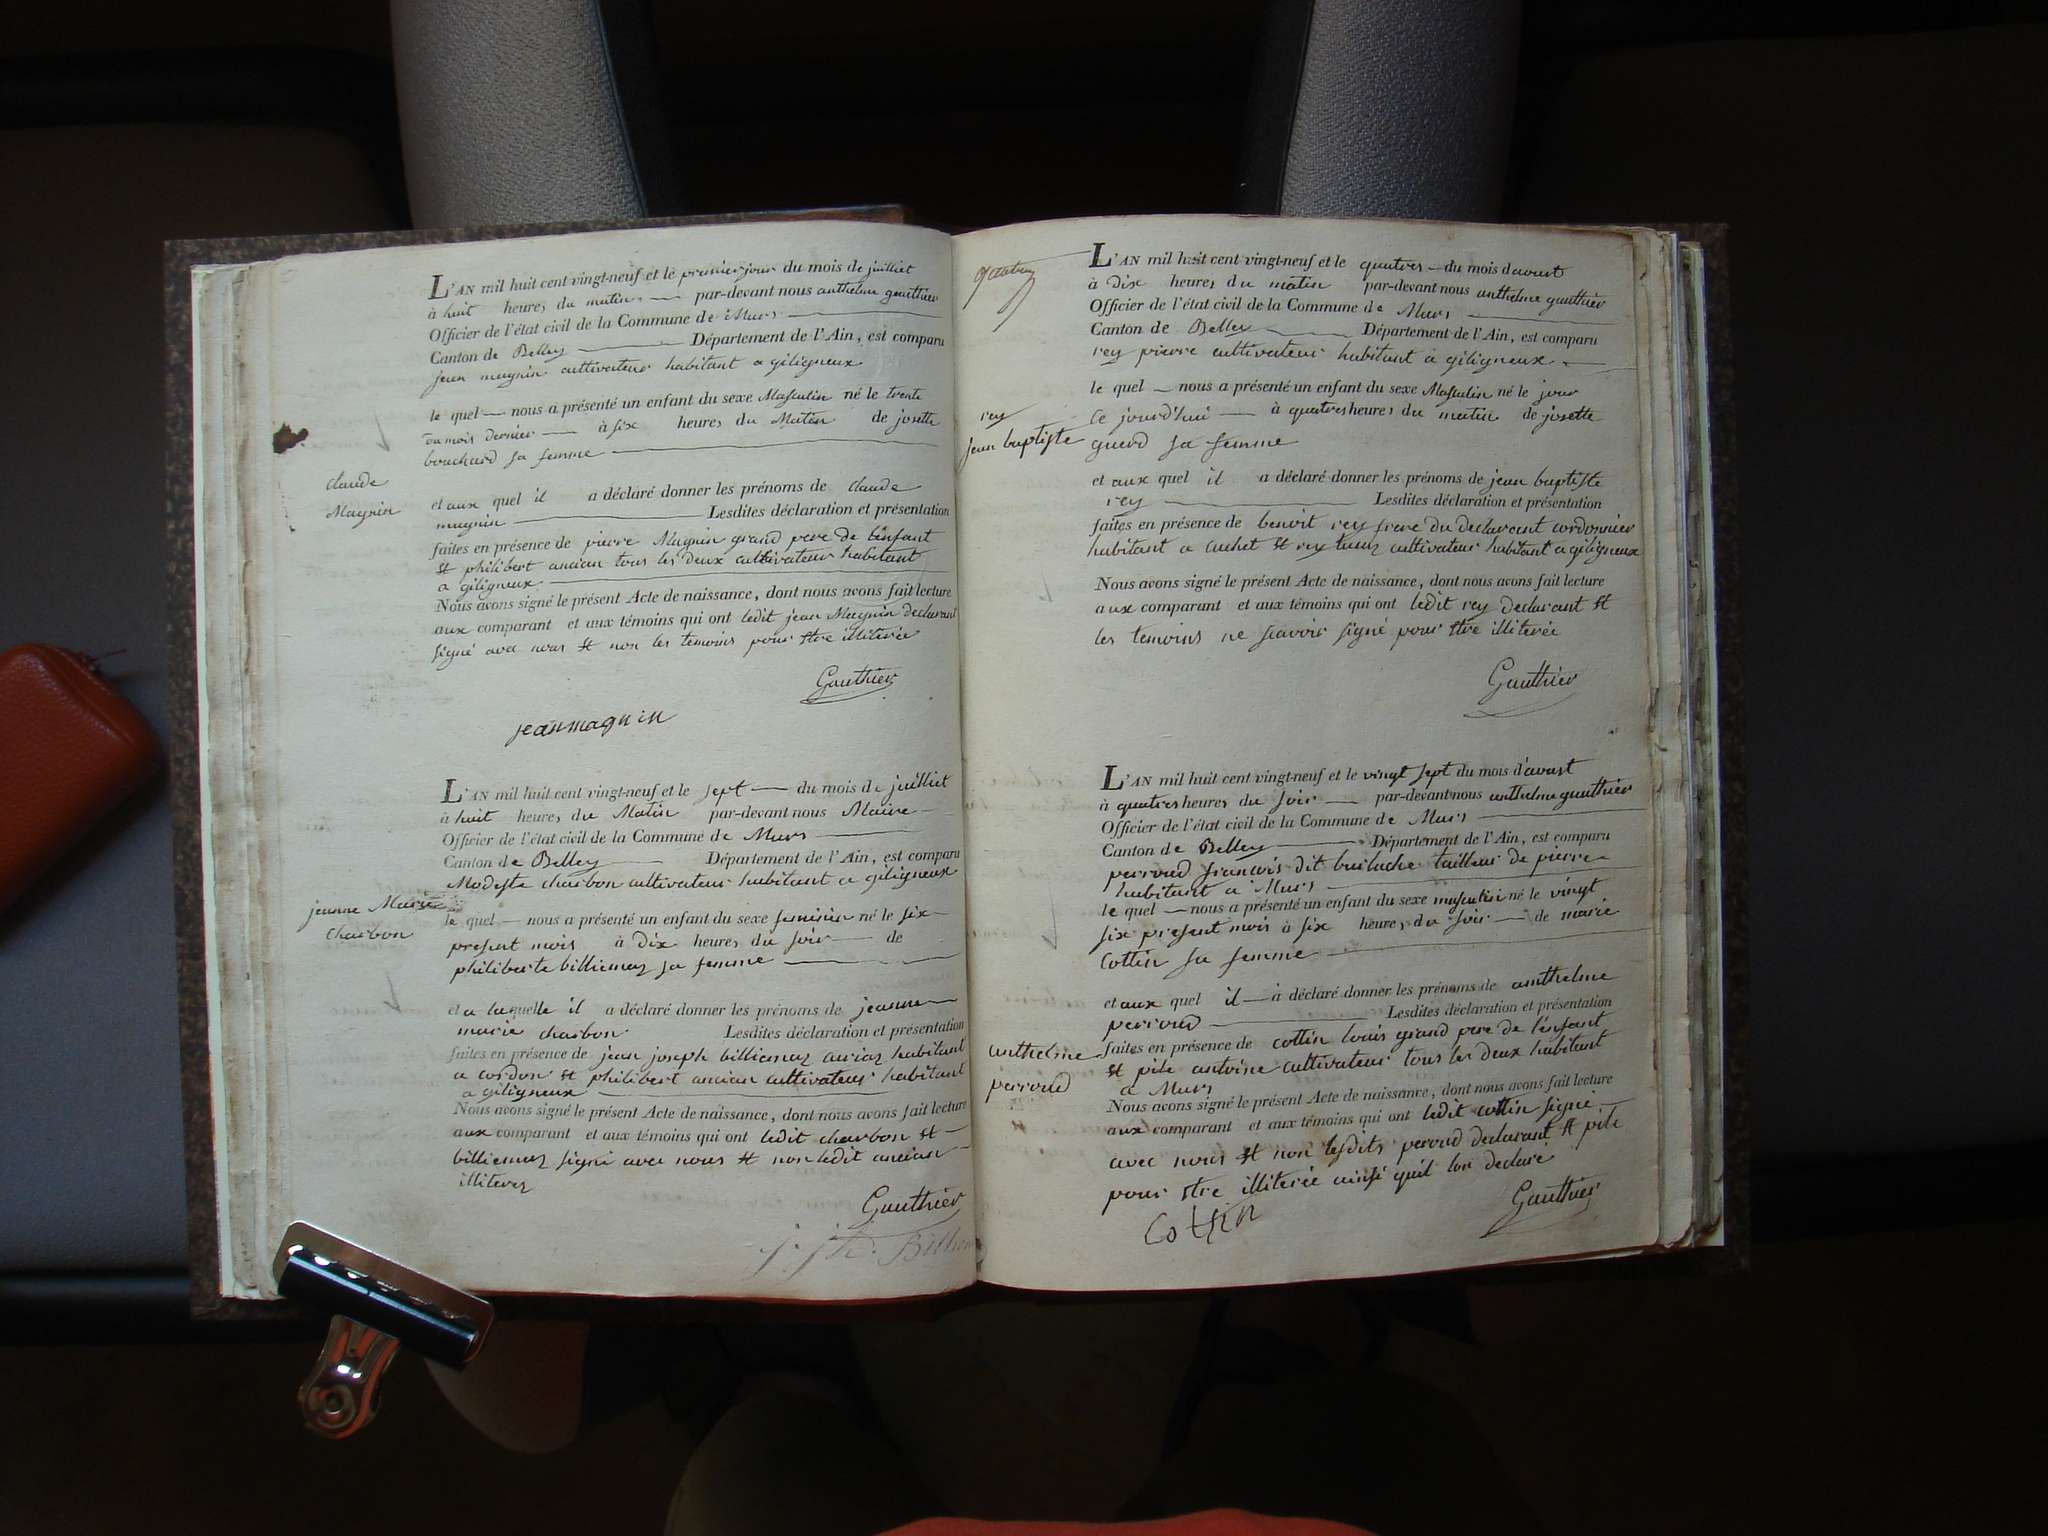 L'AN mil huit cent vingt-neuf et le premier jour du mois de juilliet
à huit heures du matin par-devant nous anthelme gauthier
Officier de l'état civil de la Commune de Murs
Canton de Belley Département de l'Ain, est comparu
jean magnin cultivateur habitant a giligneux
le quel nous a présenté un enfant du sexe Masculin né le trente
du mois dernier à six heures du Matin de josette
bouchard sa femme
claude
Magnin
et aux quel il a déclaré donner les prénoms de claude
magnin Lesdites déclaration et présentation
faites en présence de pierre Magnin grand pere de l'enfant
et philibert ancian tous les deux cultivateur habitant
a giligneux
Nous avons signé le présent Acte de naissance, dont nous avons fait lecture
aux comparant et aux témoins qui ont ledit jean Magnin declarant
signé avec nous et non les temoins pour etre illiterée
Gauthier
jean magnin
L'AN mil huit cent vingt-neuf et le sept du mois de juilliet
à huit heures du Matin par-devant nous Maire
Officier de l'état civil de la Commune de Murs
Canton de Belley Département de l'Ain, est comparu
Modeste charbon cultivateur habitant a giligneux
jeanne Marie
charbon
le quel nous a présenté un enfant du sexe feminin né le six
present mois à dix heures du soir de
philiberte billiemaz sa femme
et a laquelle il a déclaré donner les prénoms de jeanne
marie charbon Lesdites déclaration et présentation
faites en présence de jean joseph billiemaz habitant
a cordon et philibert ancian cultivateur habitant
a giligneux
Nous avons signé le présent Acte de naissance, dont nous avons fait lecture
aux comparant et aux témoins qui ont ledit charbon et
billiemaz signé avec nous et non ledit ancian
illiterez
Gauthier
L'AN mil huit cent vingt-neuf et le quatres du mois d'avust
à Dix heures du matin par-devant nous anthelme gauthier
Officier de l'état civil de la Commune de Murs
Canton de Belley Département de l'Ain, est comparu
rey pierre cultivateur habitant à giligneux
le quel nous a présenté un enfant du sexe Masculin né le jour
ce jourd'hui à quatres heures du matin de josette
sa femme
rey
jean baptiste
et aux quel il a déclaré donner les prénoms de jean baptiste
rey Lesdites déclaration et présentation
faites en présence de benoit rey frere du declarant cordonnier
habitant a et rey cultivateur habitant a giligneux
Nous avons signé le présent Acte de naissance, dont nous avons fait lecture
aux comparant et aux témoins qui ont ledit rey declarant et
les temoins ne scavoir signé pour etre illiterée
Gauthier
L'AN mil huit cent vingt-neuf et le vingt sept du mois d'avust
à quatres heures du soir par-devant nous anthelme gauthier
Officier de l'état civil de la Commune de Murs
Canton de Belley Département de l'Ain, est comparu
perroud francois dit tailleur de pierre
habitant a Murs
le quel nous a présenté un enfant du sexe masculin né le vingt
six present mois à six heures du soir de marie
Cottin sa femme
et aux quel il a déclaré donner les prénoms de anthelme
perroud Lesdites déclaration et présentation
anthelme
perroud
faites en présence de cottin louis grand pere de l'enfant
et pile antoine cultivateur tous les deux habitant
a Murs
Nous avons signé le présent Acte de naissance, dont nous avons fait lecture
aux comparant et aux témoins qui ont ledit cottin signé
avec nous et non lesdits peroud declarant et pile
pour etre illiterée ainsi quil lon declaré
Gauthier
Cottin